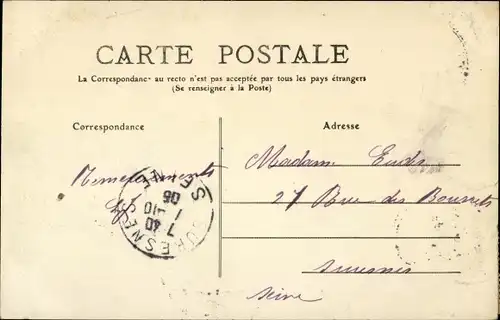 CARTE POSTALE
La Correspondance au recto n'est pas acceptée par tous les pays étrangers
(Se renseigner à la Poste)
Correspondance
Adresse
Remerciements
Madame Eude
27 Rue des
Suresnes
Seine
SURESNES
SEINE
7 40
1 10
06